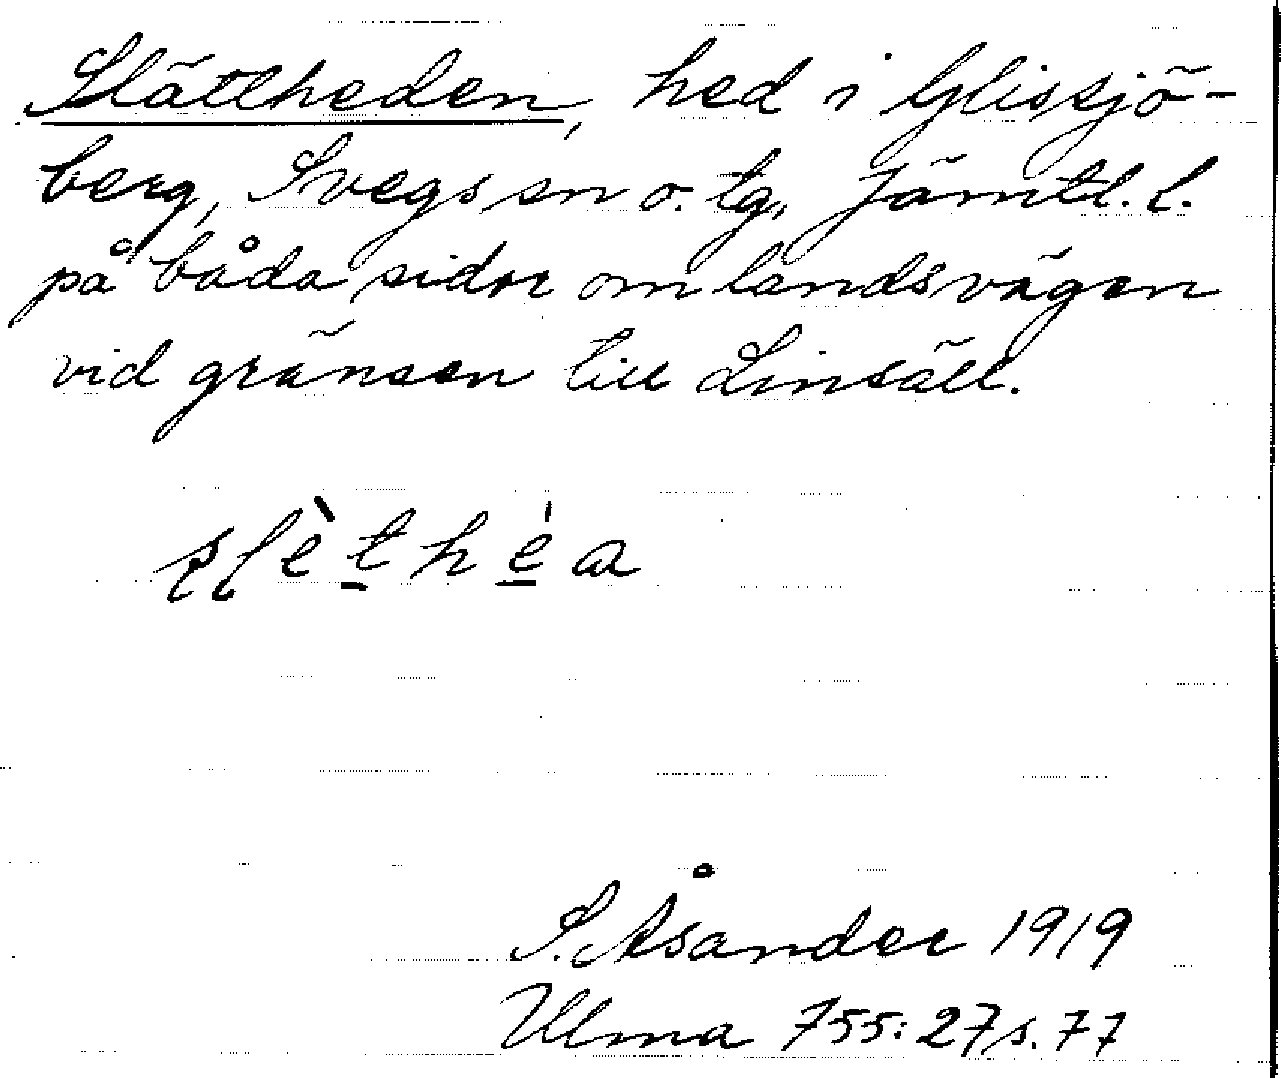 Slättheden, hed i Glissjö-
berg, Svegs sn o. tg, Jämtl. l.
på båda sidor om landsvägen
vid gränsen till Linsäll.
S. Åsander 1919
Ulma 755:27 s. 77